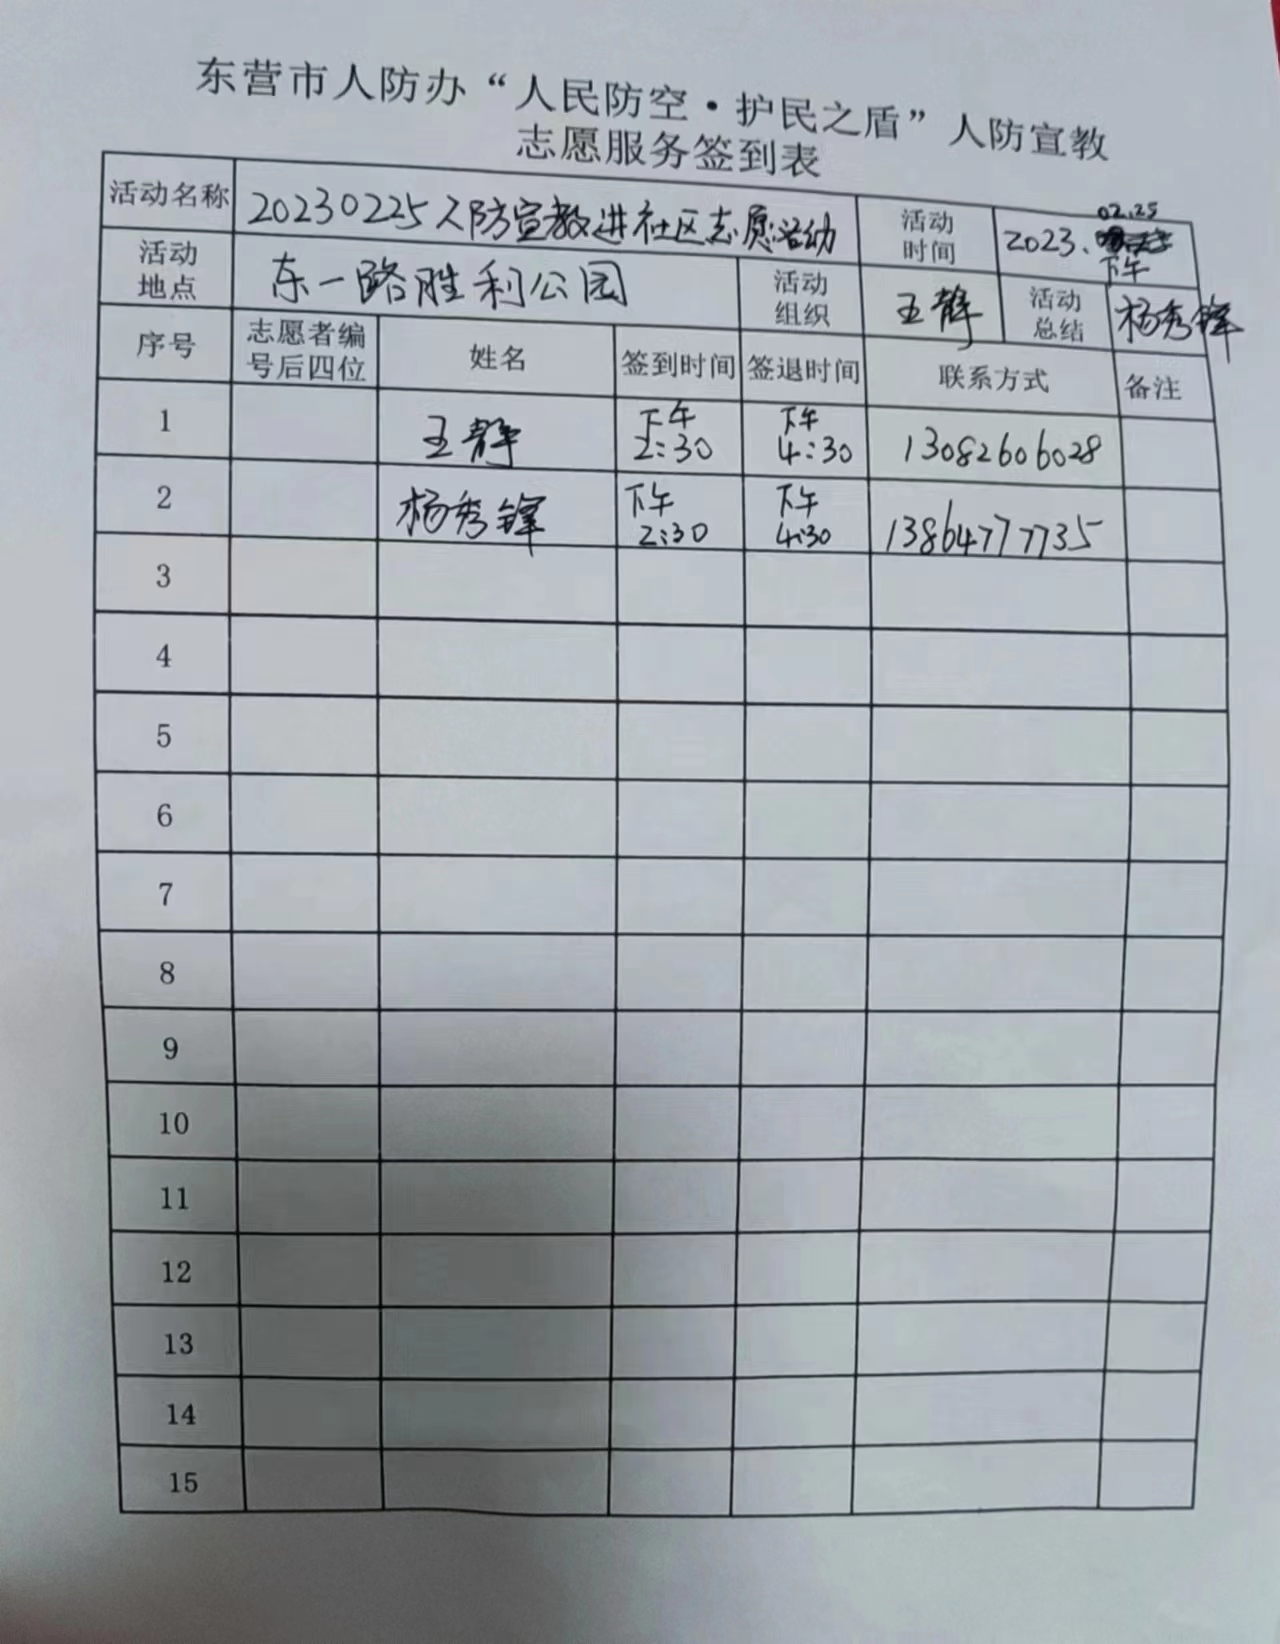 东营市人防办“人民防空·护民之盾”人防宣教
志愿服务签到表
活动名称 20230225人防宣教进社区志愿活动 活动时间 2023.02.25 下午
活动地点 东一路胜利公园 活动组织 王静 活动总结 杨秀锋
序号 志愿者编号后四位 姓名 签到时间 签退时间 联系方式 备注
1 王静 下午2:30 下午4:30 13082606028
2 杨秀锋 下午2:30 下午4:30 13864777735
3
4
5
6
7
8
9
10
11
12
13
14
15